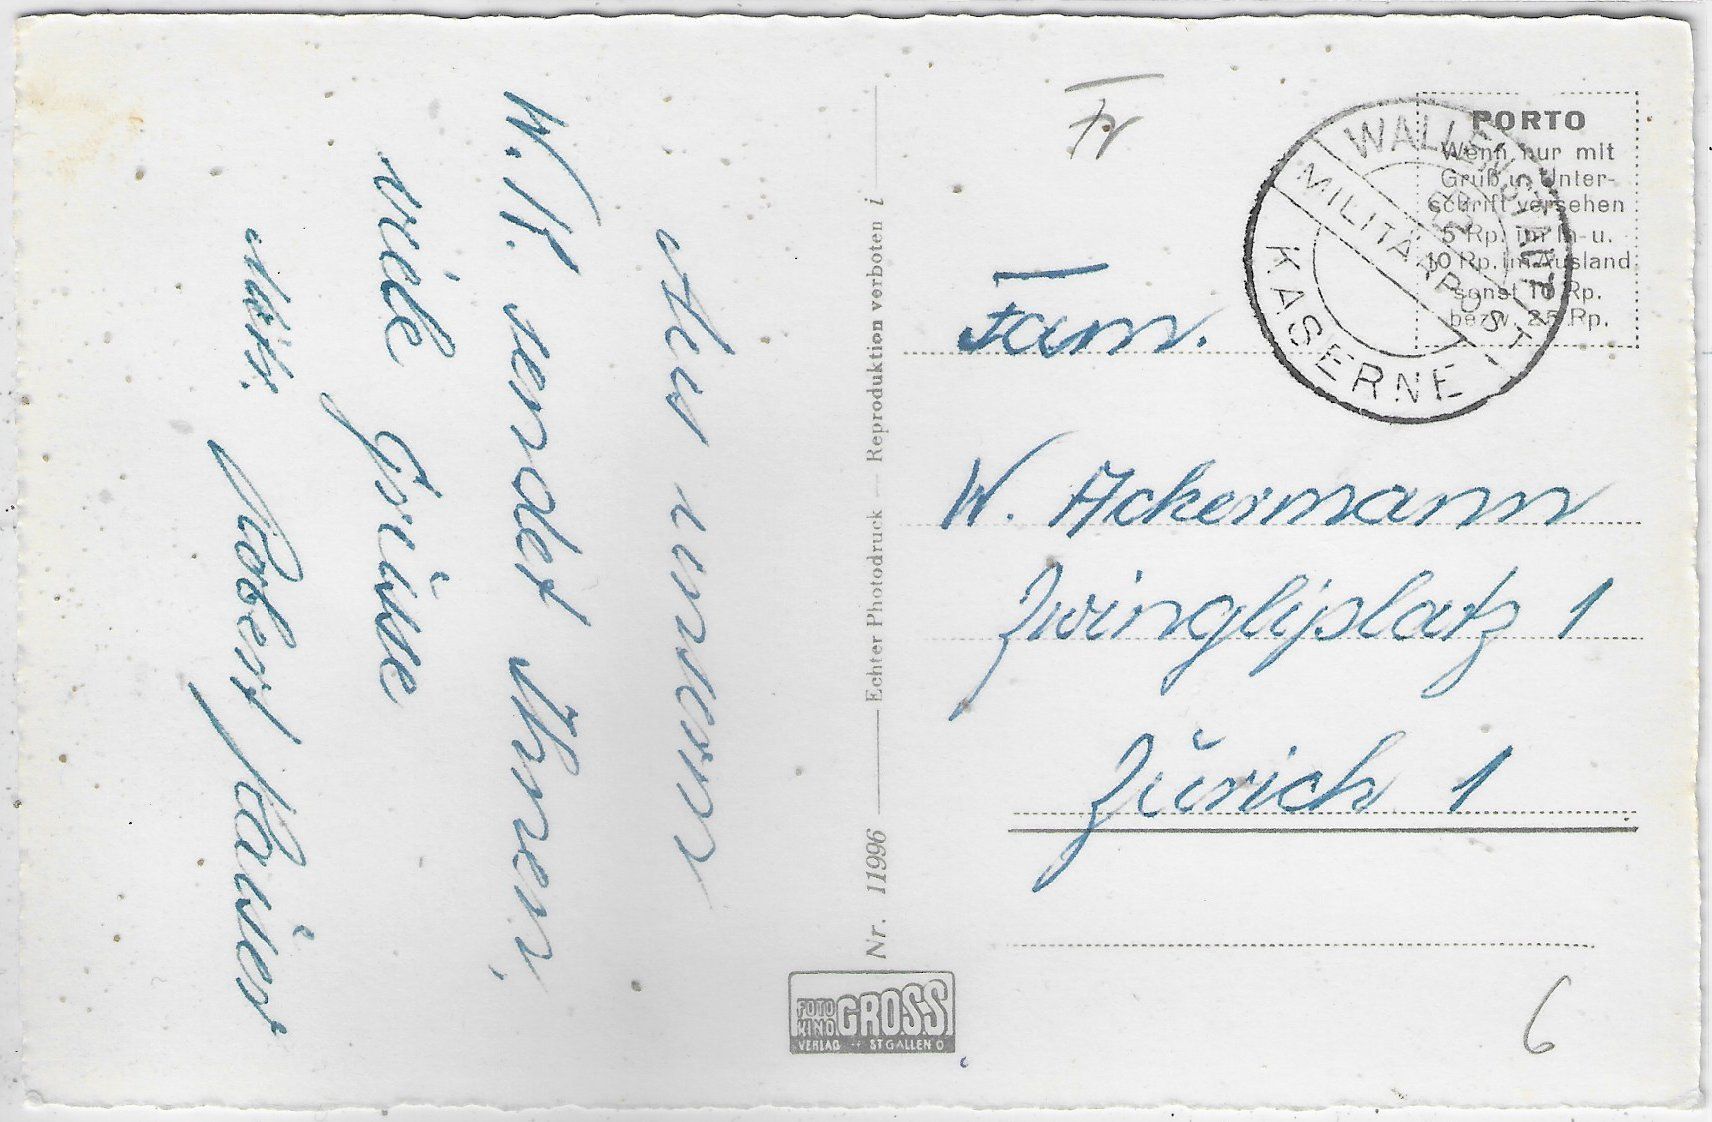 Aus unserm
W.K. sendet Ihnen,
viele Grüsse
Mitr. Robert
Nr. 11996 — Echter Photodruck — Reproduktion verboten i
FOTO KINO GROSS
VERLAG ST GALLEN O
Fr
PORTO
Wenn nur mit
Gruß u. Unter-
schrift versehen
5 Rp. im In- u.
10 Rp. im Ausland
sonst 10 Rp.
bezw. 25 Rp.
WALLENSTADT
MILITÄRPOST
KASERNE
Fam.
W. Ackermann
Zwingliplatz 1
Zürich 1
6